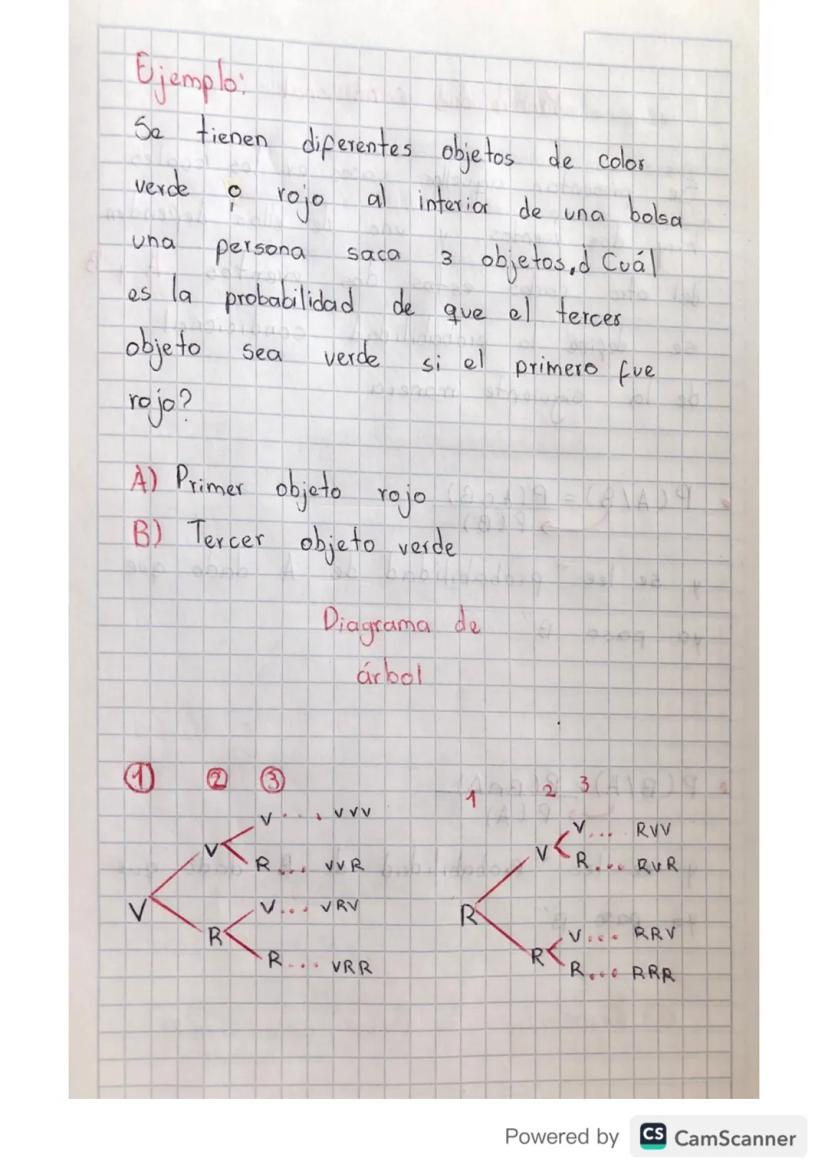 Ejemplo:
Se tienen diferentes objetos de color
verde o rojo al interior de una bolsa
una persona saca 3 objetos, ¿Cuál
es la probabilidad de que el tercer
objeto sea verde si el primero fue
rojo?
A) Primer objeto rojo
B) Tercer objeto verde
Diagrama de
árbol
① ② ③
V... VVV
V
R... VVR
V
V... VRV
R
R... VRR
1 2 3
V... RVV
V
R... RVR
R
V... RRV
R
R... RRR
Powered by CS CamScanner